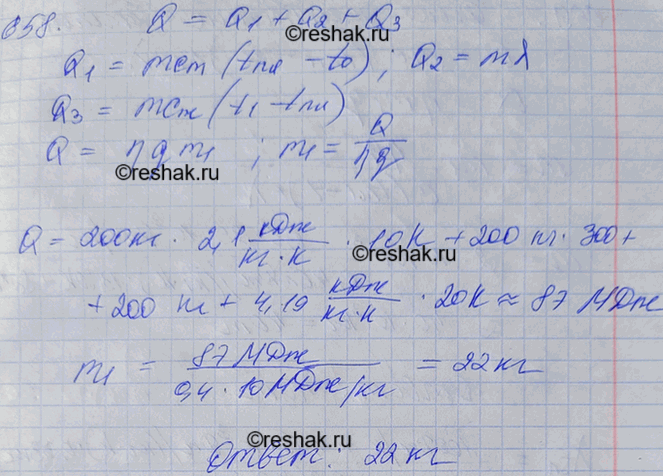 658. Q = Q1 + Q2 + Q3
reshak.ru
Q1 = mcт (tпл - t0); Q2 = mλ
Q3 = mcж (t1 - tпл)
Q = ηqm1; m1 = Q/ηq
reshak.ru
reshak.ru
Q = 200кг · 2,1 кДж/кг·К · 10К + 200 кг · 300 +
+ 200 кг + 4,19 кДж/кг·К · 20К ≈ 87 МДж
m1 = 87 МДж / 0,4 · 10 МДж/кг = 22 кг
reshak.ru
reshak.ru
Ответ: 22 кг